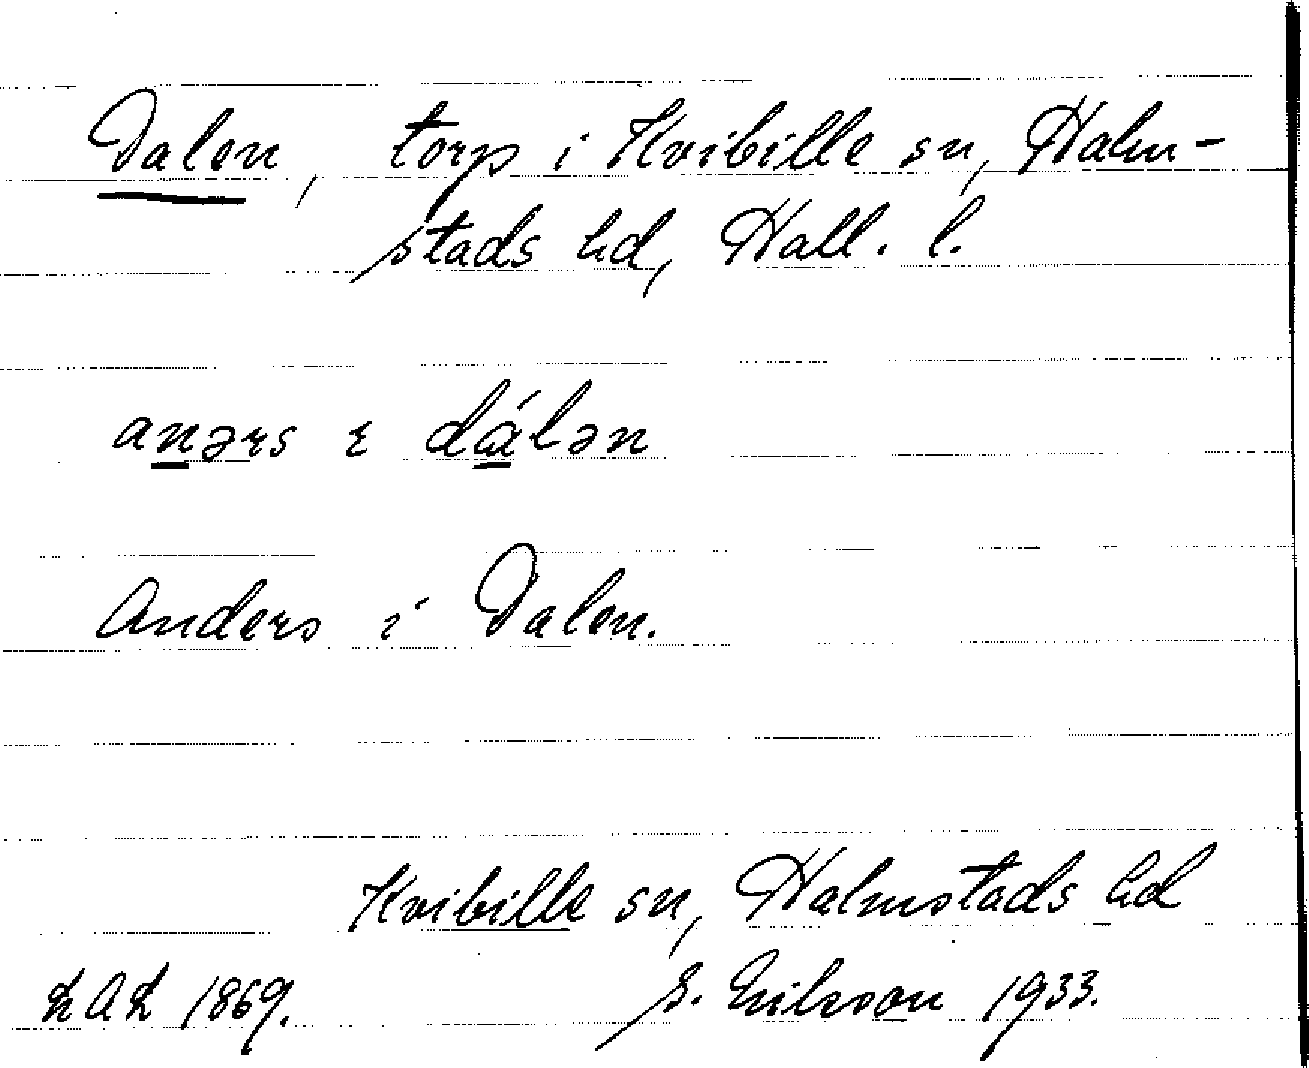 Dalen, torp i Kvibille sn, Halm-
stads hd, Hall. l.
anərs ɛ dálən
Anders i Dalen.
Kvibille sn, Halmstads hd
LAL 1869. 1933.